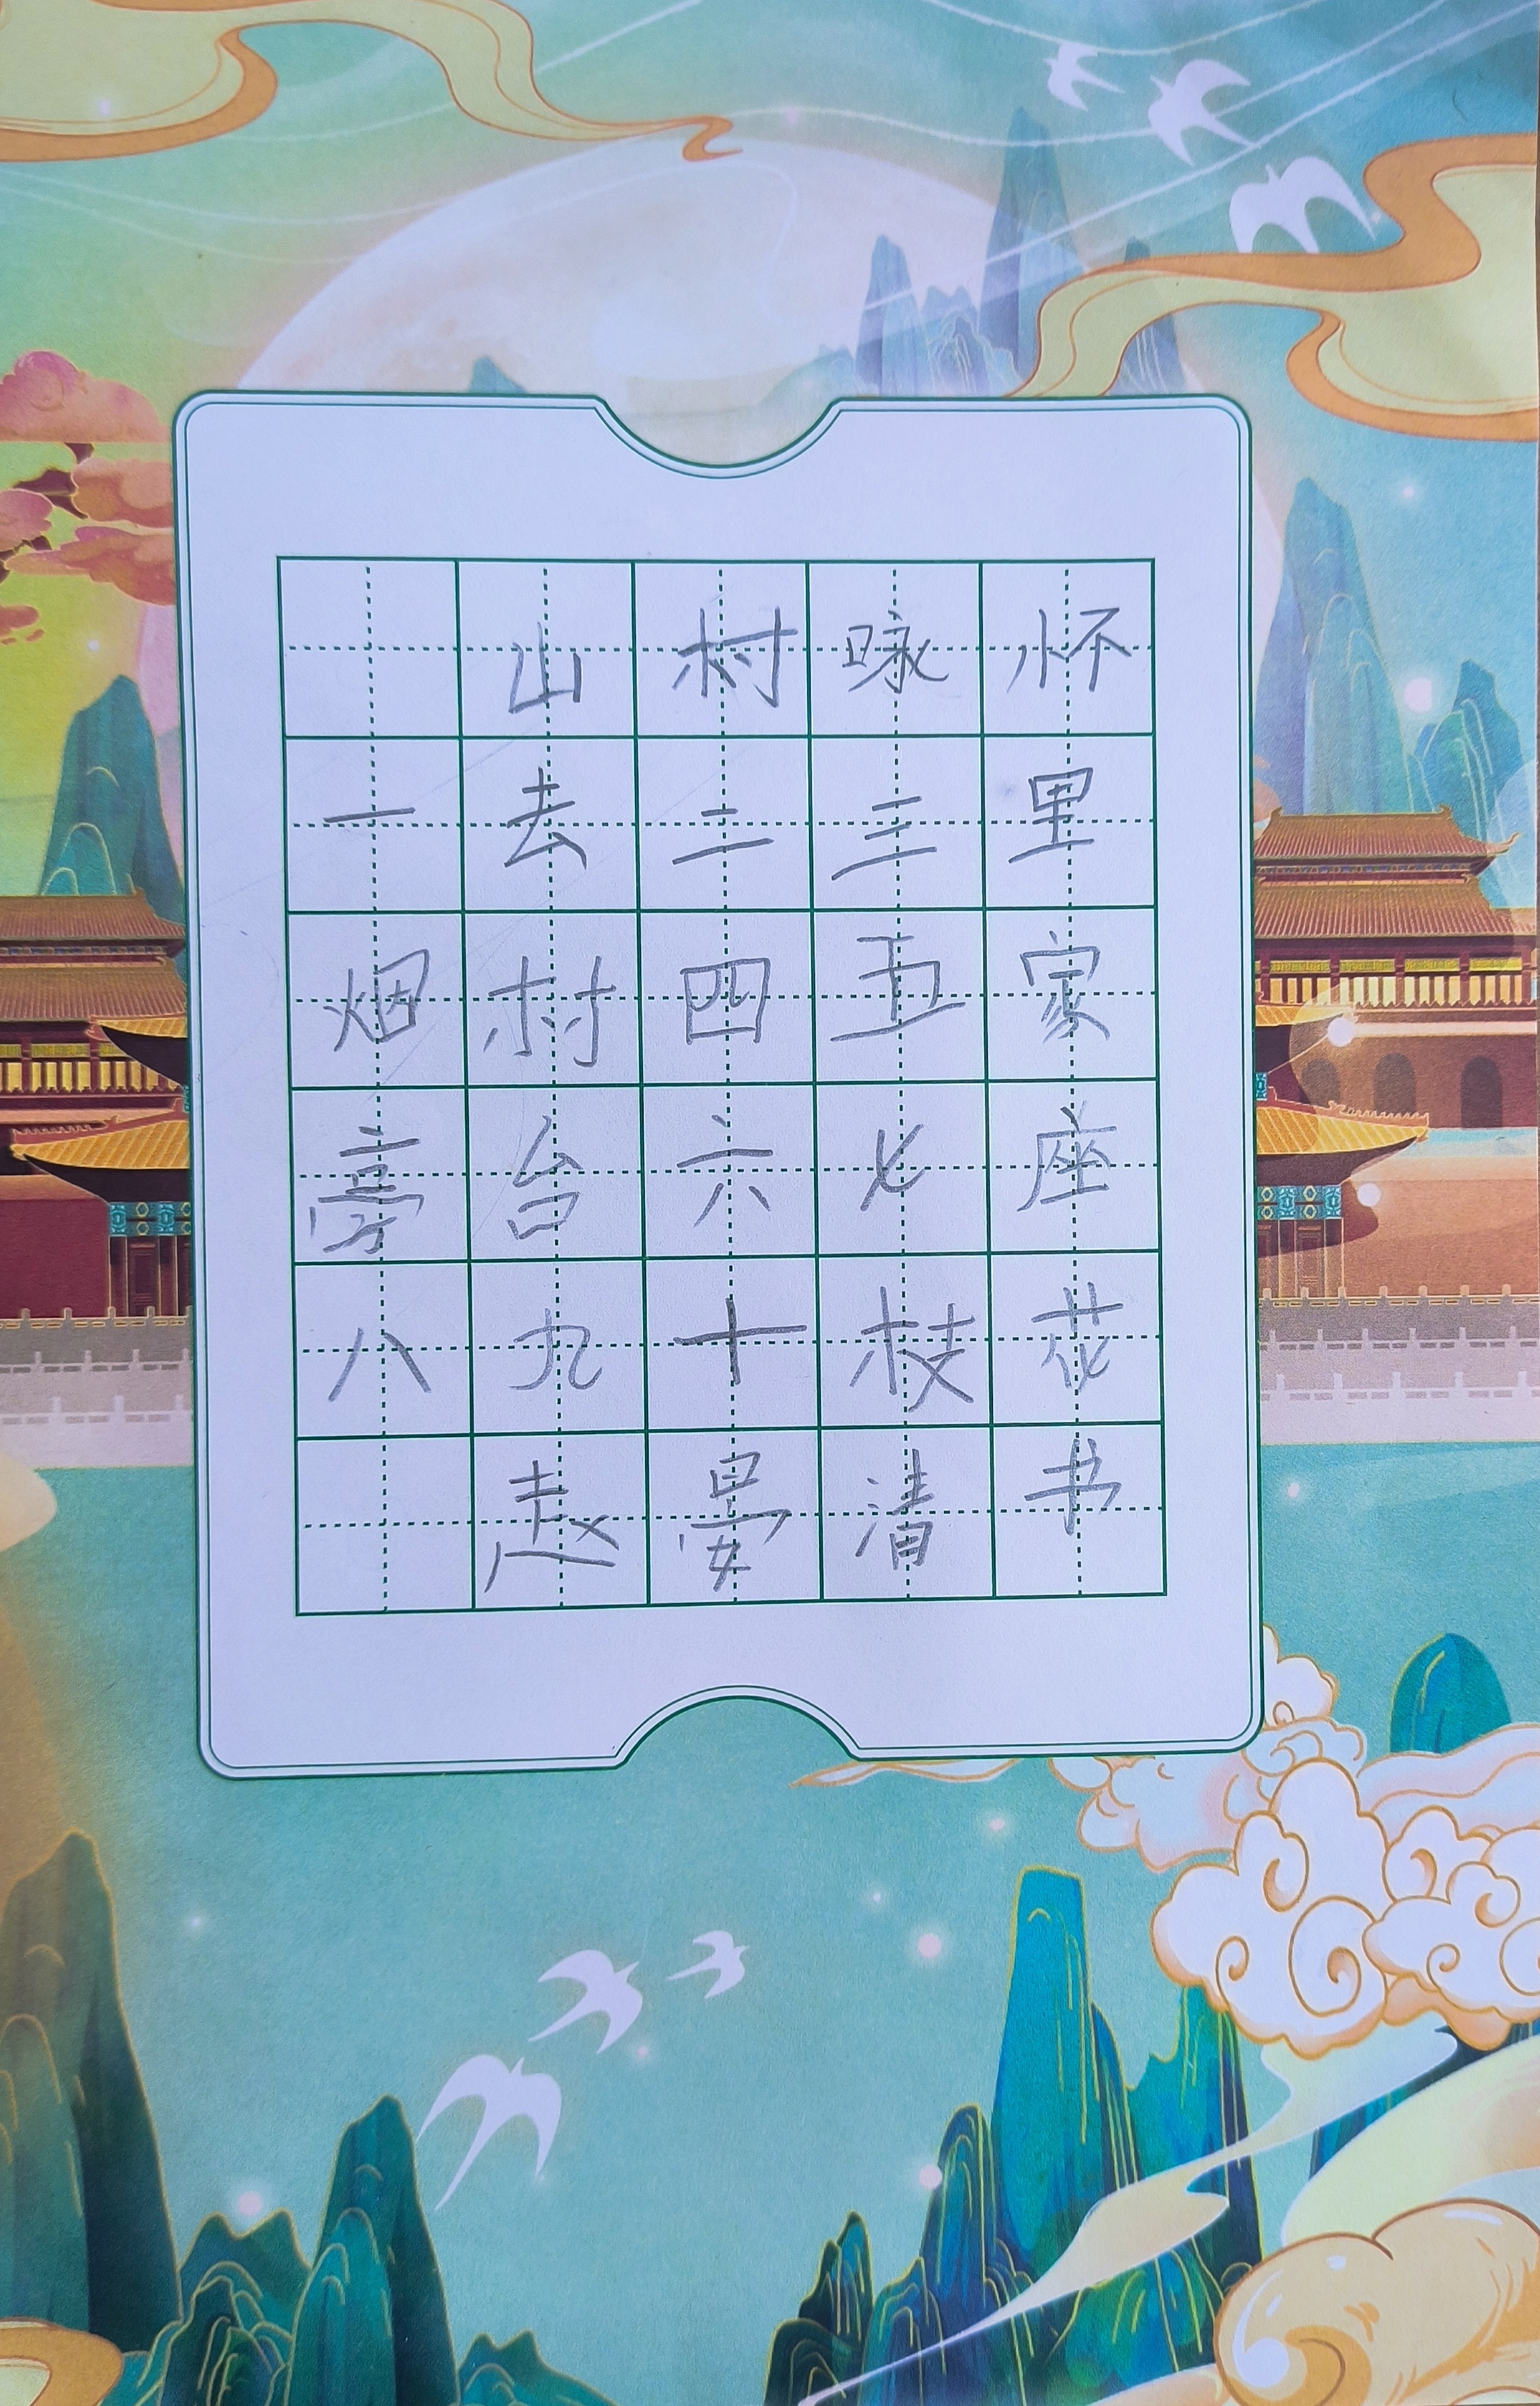 山村咏怀
一去二三里
烟村四五家
亭台六七座
八九十枝花
赵晏清书